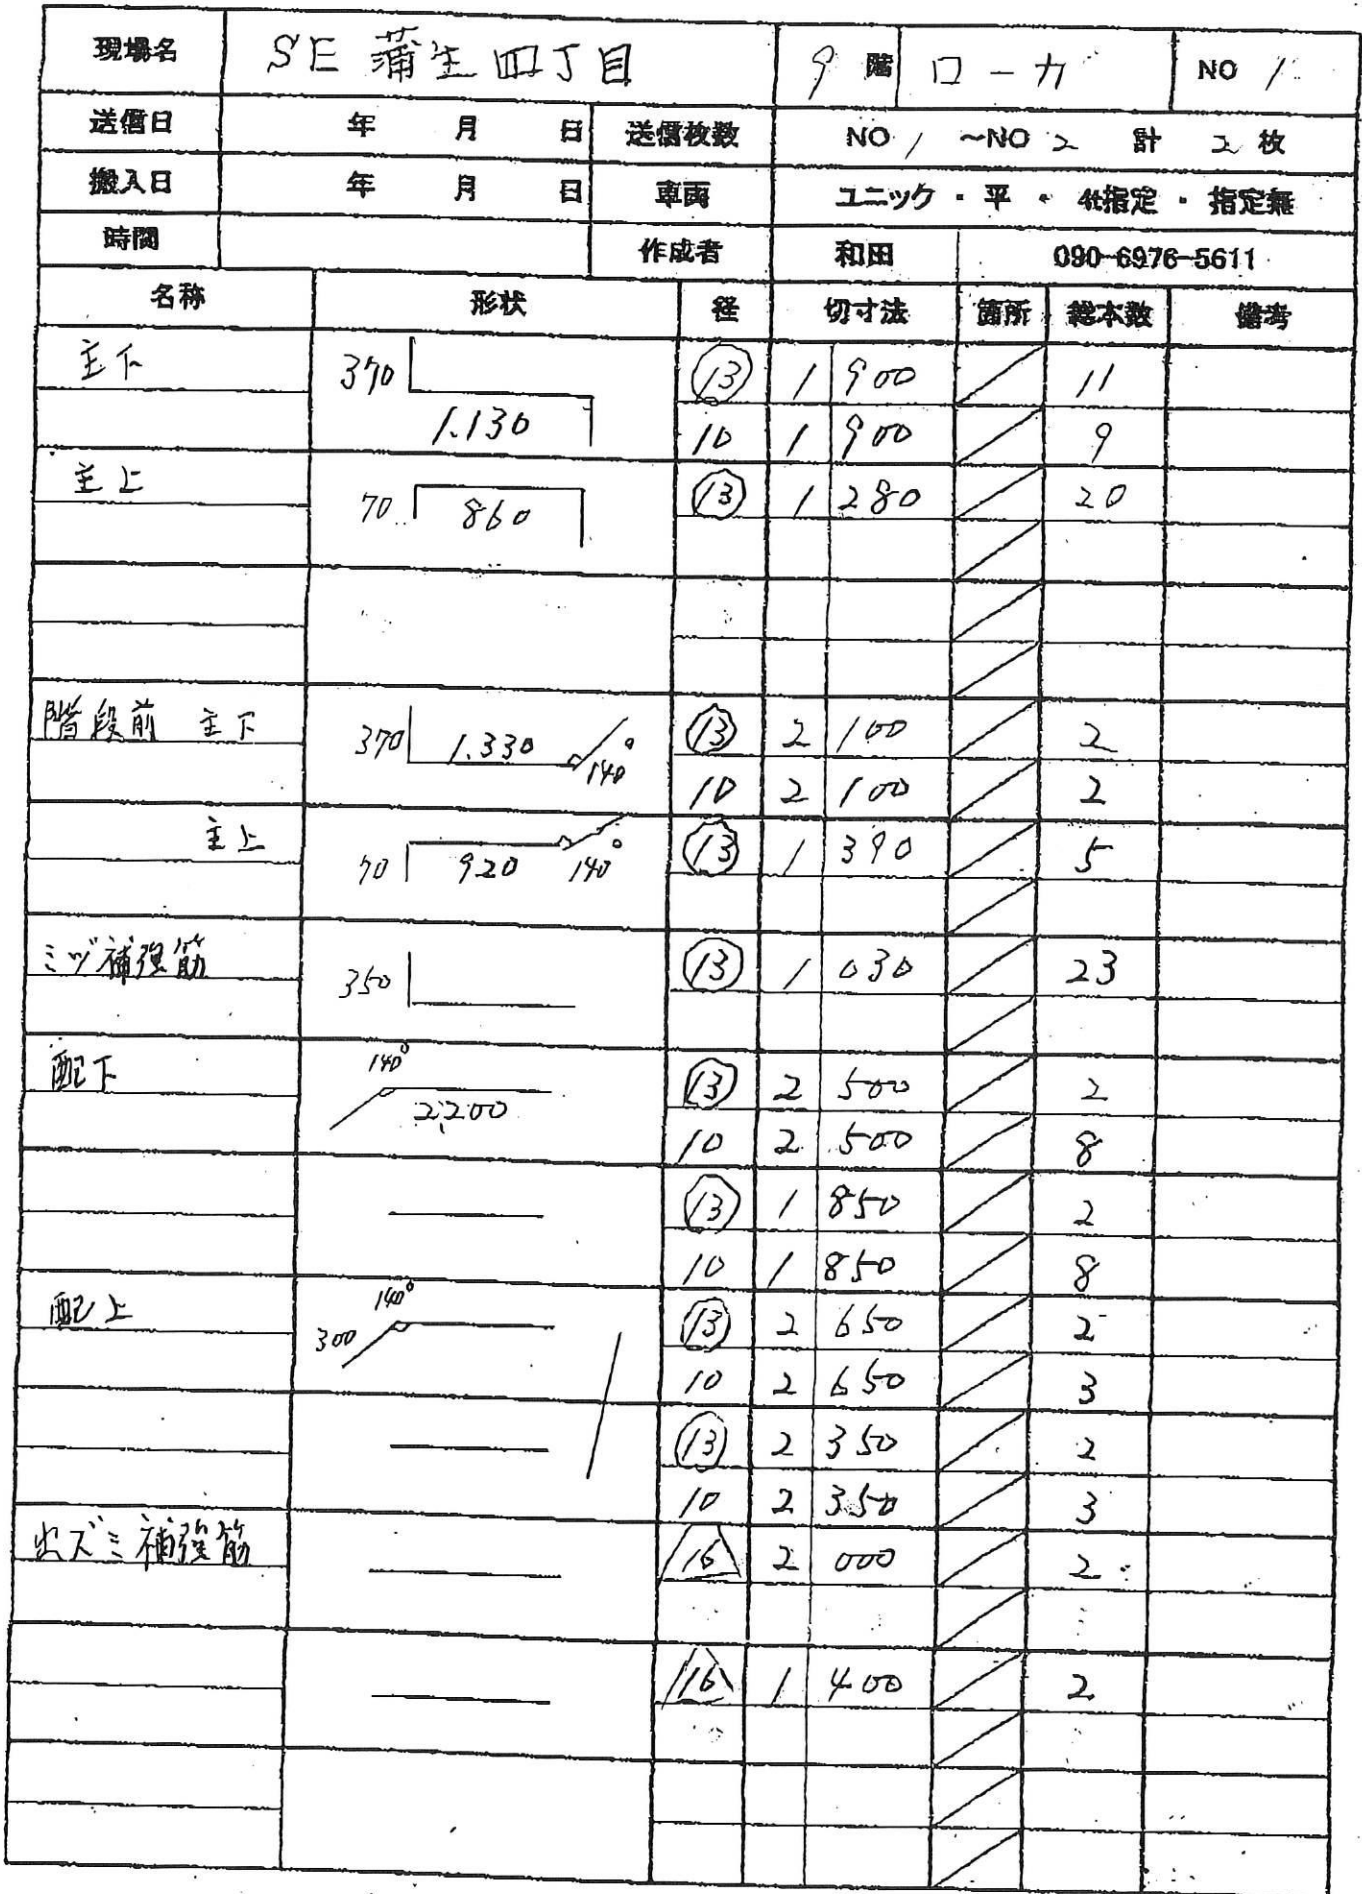 現場名 SE 蒲生四丁目 9 階 ローカ NO 1
送信日 年 月 日 送信枚数 NO 1 ~NO 2 計 2 枚
搬入日 年 月 日 車両 ユニック ・ 平 ・ 4t指定 ・ 指定無
時間 作成者 和田 090-6976-5611
名称 形状 径 切寸法 箇所 総本数 備考
主下 370 1.130 13 1 900 11
10 1 900 9
主上 70 860 13 1 280 20
階段前 主下 370 1.330 140° 13 2 100 2
10 2 100 2
主上 70 920 140° 13 1 390 5
ミゾ補強筋 350 13 1 030 23
配下 140° 2,200 13 2 500 2
10 2 500 8
13 1 850 2
10 1 850 8
配上 300 140° 13 2 650 2
10 2 650 3
13 2 350 2
10 2 350 3
出ズミ補強筋 16 2 000 2
16 1 400 2